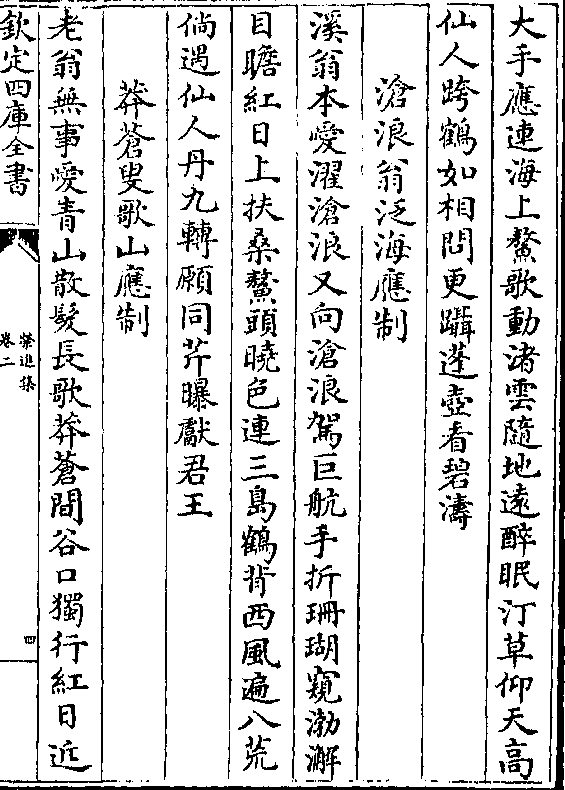 大手應連海上鰲歌動渚雲隨地遠醉眠汀草仰天高
仙人跨鶴如相問更躡蓬壺看碧濤
滄浪翁泛海應制
溪翁本愛濯滄浪又向滄浪駕巨航手折珊瑚窺渤澥
目瞻紅日上扶桑鰲頭曉色連三島鶴背西風遍八荒
倘遇仙人丹九轉願同芹曝獻君王
莽蒼叟歌山應制
老翁無事愛青山散髮長歌莽蒼間谷口獨行紅日近
欽定四庫全書
榮進集
卷二
四